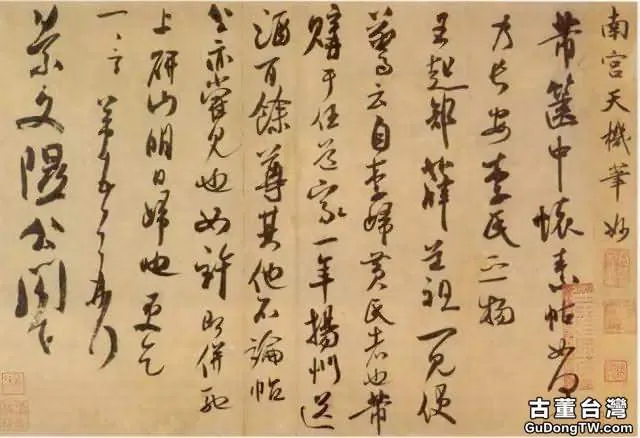 南宮天機筆妙
芾篋中懷素帖如何
乃長安李氏之物
王起部薛道祖一見便
驚云自李歸黃氏者也芾
購于任道家一年揚州送
酒百餘尊其他不論帖
公亦嘗見也如許即併馳
上研山明日歸也更乞
一言芾頓首再拜
景文隰公閣下
古董台灣
GuDongTW.com